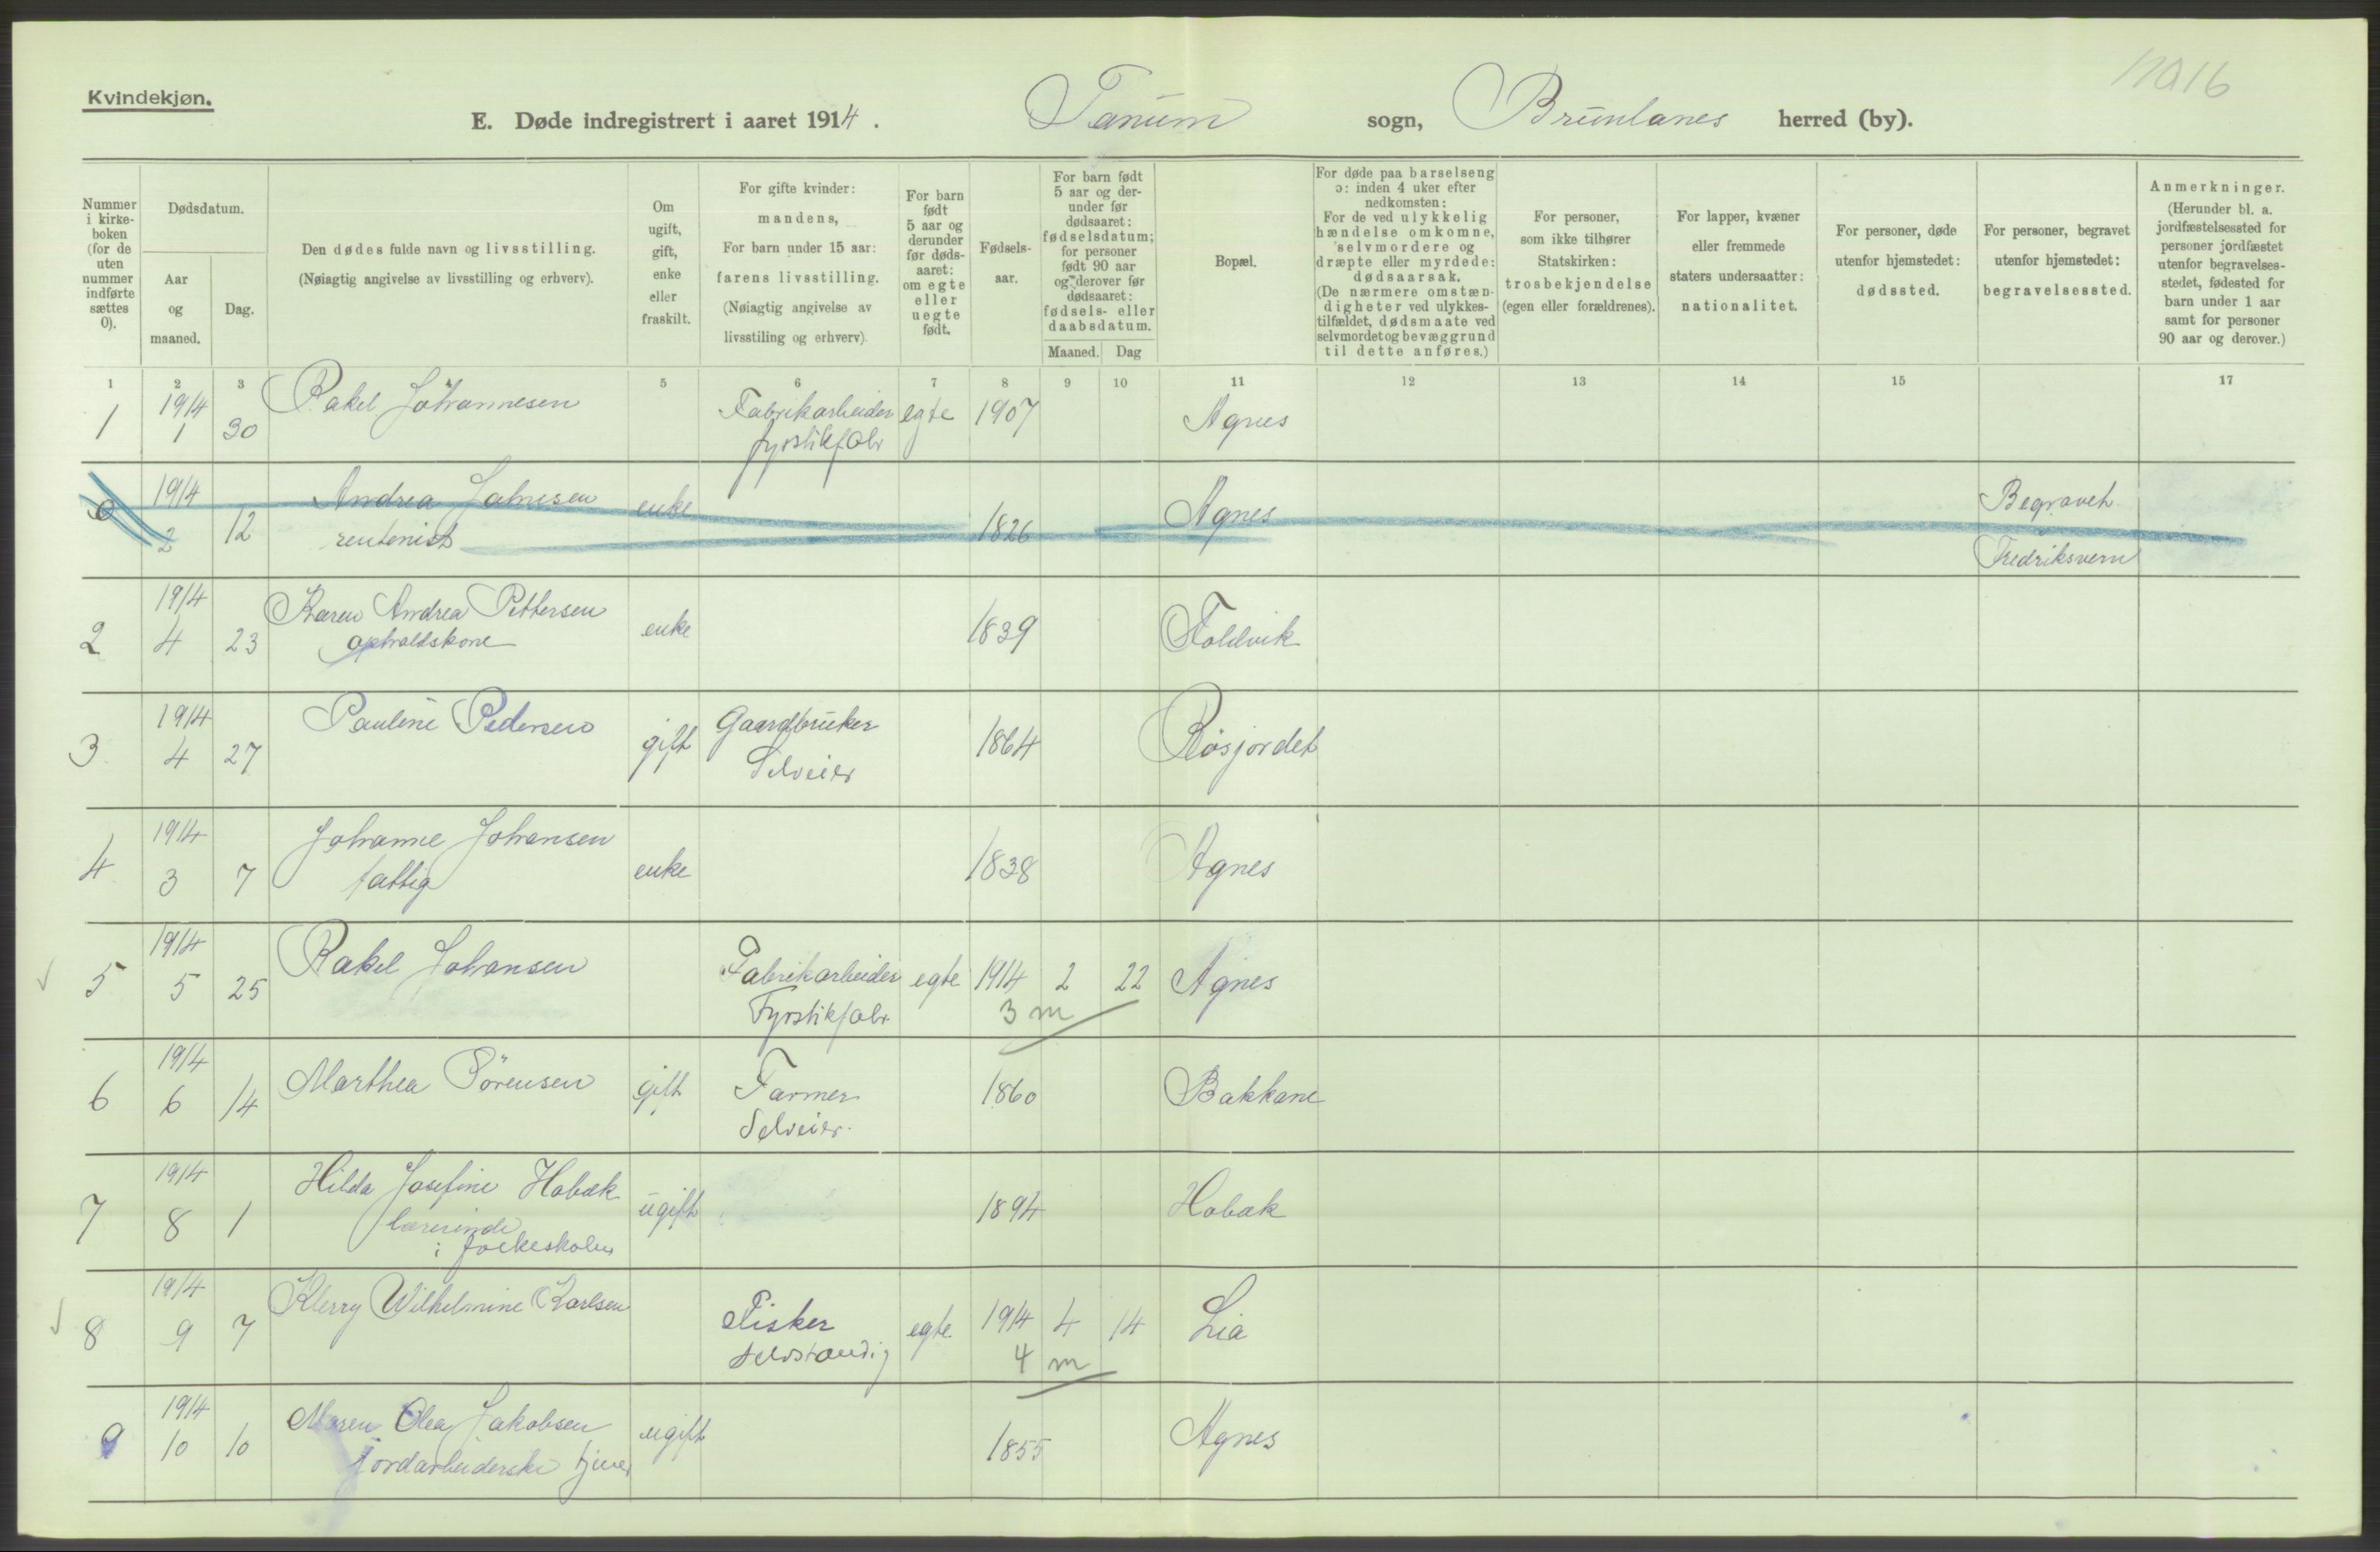 Kvindekjøn.
E. Døde indregistrert i aaret 1914. Tanum sogn, Brunlanes herred (by).
Nummer i kirkeboken (for de uten nummer indførte sættes 0).
Dødsdatum.
Aar og maaned.
Dag.
Den dødes fulde navn og livsstilling.
(Nøiagtig angivelse av livsstilling og erhverv).
Om ugift, gift, enke eller fraskilt.
For gifte kvinder: mandens,
For barn under 15 aar: farens livsstilling.
(Nøiagtig angivelse av livsstiling og erhverv).
For barn født 5 aar og derunder før dødsaaret: om egte eller uegte født.
Fødselsaar.
For barn født 5 aar og derunder før dødsaaret: fødselsdatum; for personer født 90 aar og derover før dødsaaret: fødsels- eller daabsdatum.
Maaned. Dag
Bopæl.
For døde paa barselseng ɔ: inden 4 uker efter nedkomsten:
For de ved ulykkelig hændelse omkomne, selvmordere og dræpte eller myrdede: dødsaarsak.
(De nærmere omstændigheter ved ulykkestilfældet, dødsmaate ved selvmordet og bevæggrund til dette anføres.)
For personer, som ikke tilhører Statskirken: trosbekjendelse (egen eller forældrenes).
For lapper, kvæner eller fremmede staters undersaatter: nationalitet.
For personer, døde utenfor hjemstedet: dødssted.
For personer, begravet utenfor hjemstedet: begravelsessted.
Anmerkninger.
(Herunder bl. a. jordfæstelsessted for personer jordfæstet utenfor begravelsesstedet, fødested for barn under 1 aar samt for personer 90 aar og derover.)
1 2 3 4 5 6 7 8 9 10 11 12 13 14 15 17
1 1914 1 30 Rakel Johannesen Fabrikarbeider fyrstikfabr egte 1907 Agnes
0 1914 2 12 Andrea Johnsen rentenist enke 1826 Agnes Begravet Fredriksvern
2 1914 4 23 Karen Andrea Pettersen opholdskone enke 1839 Foldvik
3 1914 4 27 Pauline Pedersen gift Gaardbruker Selveier 1864 Røsjordet
4 1914 3 7 Johanne Johansen fattig enke 1838 Agnes
5 1914 5 25 Rakel Johansen Fabrikarbeider Fyrstikfabr. egte 1914 2 22 3 m Agnes
6 1914 6 14 Marthea Sörensen gift Farmer Selveier. 1860 Bakkane
7 1914 8 1 Hilda Josefine Hobæk lærerinde i folkeskolen ugift 1894 Hobæk
8 1914 9 7 Klerry Wilhelmine Karlsen Fisker selvstændig egte 1914 4 14 4 m Lia
9 1914 10 10 Maren Olea Jakobsen jordarbeiderske tjener ugift 1855 Agnes